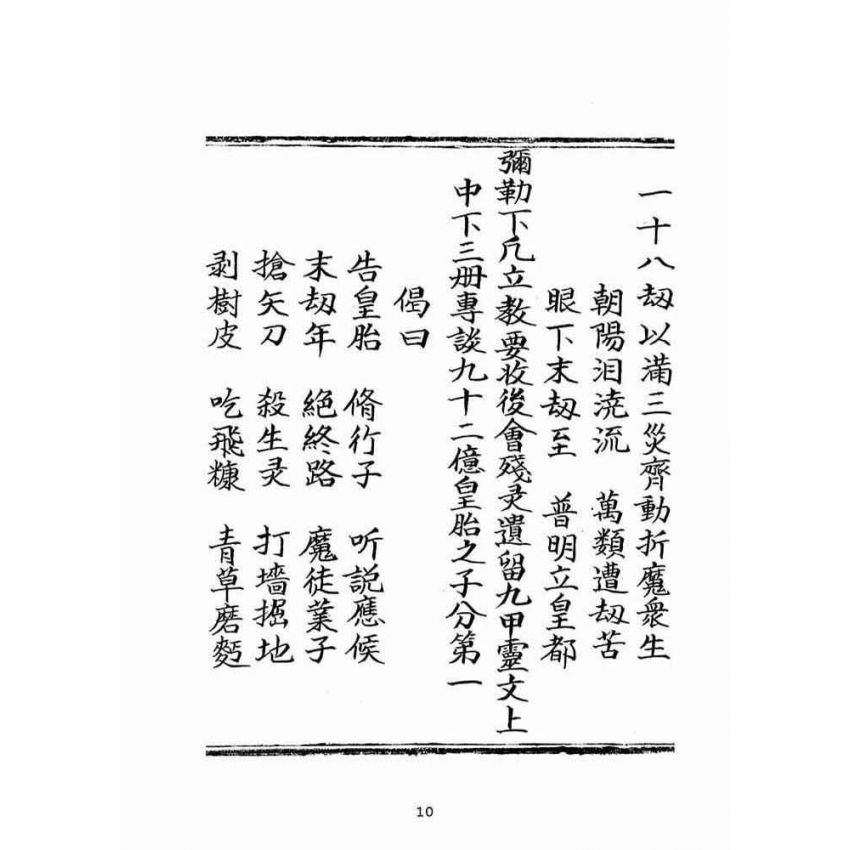 一十八刼以滿三災齊動折魔衆生
朝陽泪澆流 萬類遭刼苦
眼下末刼至 普明立皇都
彌勒下凢立教要收後會殘灵遺留九甲靈文上
中下三册專談九十二億皇胎之子分第一
偈曰
告皇胎 脩行子 听説應候
末刼年 絕終路 魔徒葉子
搶矢刀 殺生灵 打墻掘地
剥樹皮 吃飛糠 青草磨麫
10